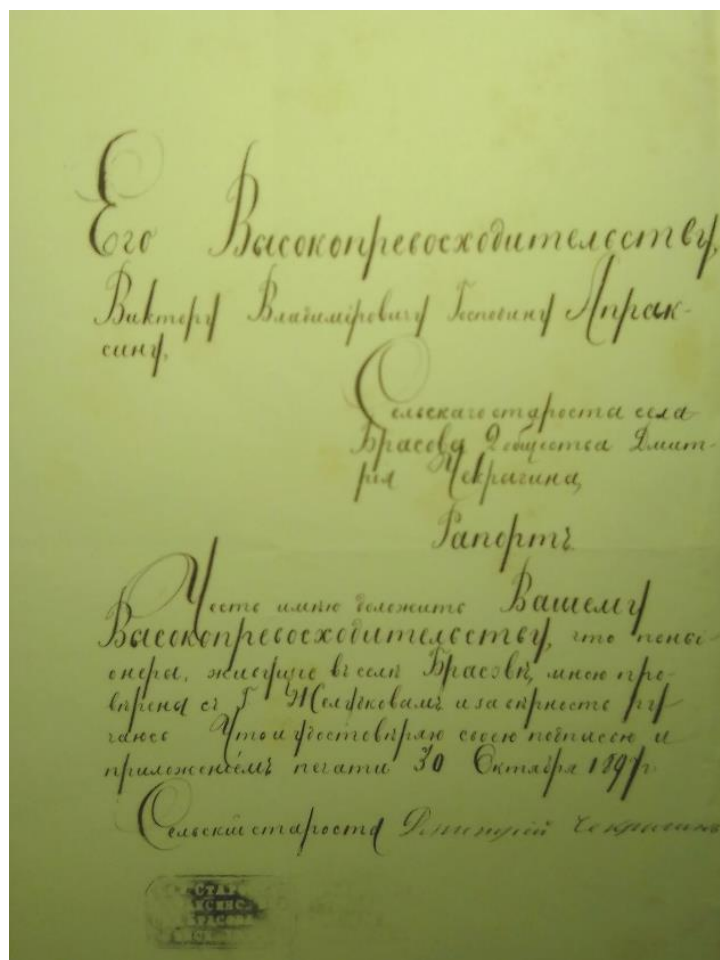 Его Высокопревосходительству,
Виктору Владиміровичу Господину Апрак-
сину,
Сельскаго старосты села
Брасова 2 общества Дмит-
рія Чекрыгина,
Рапортъ
Честь имѣю доложить Вашему
Высокопревосходительству, что пенсі-
онеры, живущіе въ селѣ Брасовѣ, мною про-
вѣрены съ Г
и за вѣрность ру-
чаюсь Что и удостовѣряю своею подписью и
приложеніемъ печати 30 Октября 1897 г.
Сельскій староста Дмитрій